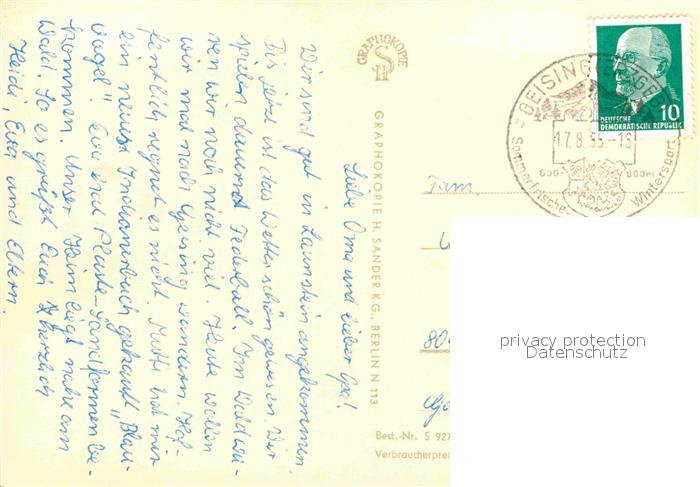 Liebe Oma und lieber Opa!
Wir sind gut in Lauenstein angekommen.
Bis jetzt ist das Wetter schön gewesen. Wir
spielen dauernd Federball. Im Wald wa-
ren wir noch nicht viel. Heute wollen
wir mal nach Geising wandern. Hof-
fentlich regnet es nicht. Mutti hat mir
ein neues Indianerbuch gekauft „Blau-
vogel“. Eva hat Plaste-Sandformen be-
kommen. Unser Heim liegt nahe am
Wald. So es grüßt Euch herzlich
Heidi, Eva und Eltern.
GRAPHOKOPIE
SH
GRAPHOKOPIE H. SANDER KG., BERLIN N 113
GEISING
17.8.
600-
800m
Sommerfrische-
Wintersport
10
DEUTSCHE
DEMOKRATISCHE REPUBLIK
Fam.
80
Best.-Nr. S 927
Verbraucherpre
privacy protection
Datenschutz